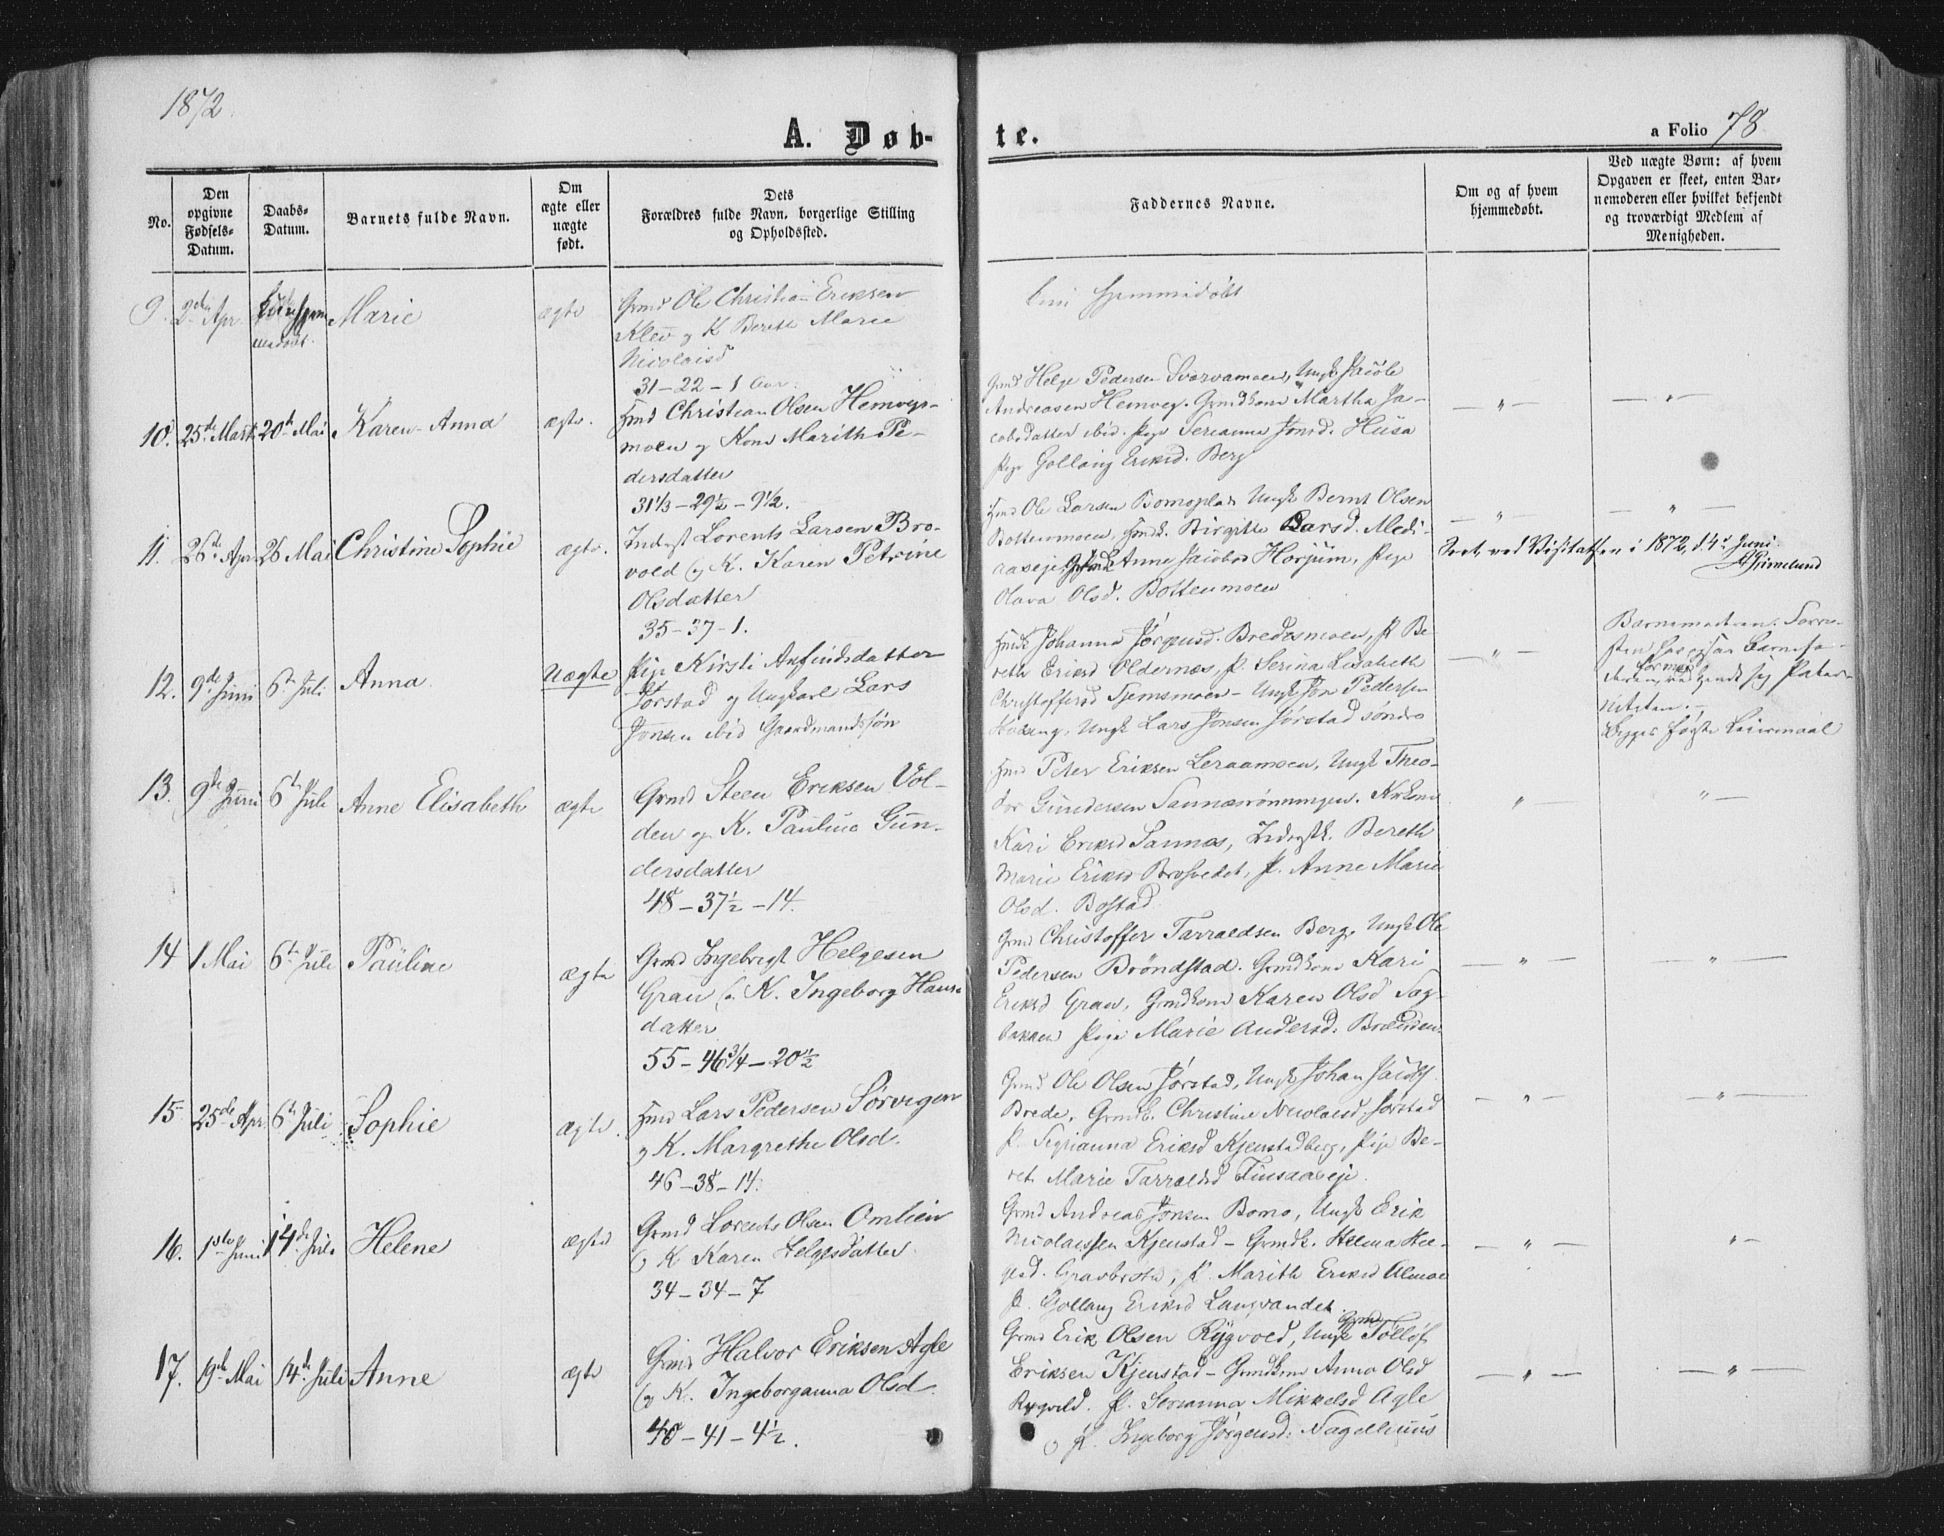 1872.
A. Døb-
te.
a Folio 78
No.
Den
opgivne
Fødsels-
Datum.
Daabs-
Datum.
Barnets fulde Navn.
Om
ægte eller
uægte
født.
Dets
Forældres fulde Navn, borgerlige Stilling
og Opholdssted.
Faddernes Navne.
Om og af hvem
hjemmedøbt.
Ved uægte Børn: af hvem
Opgaven er skeet, enten Bar-
nemoderen eller hvilket bekjendt
og troværdigt Medlem af
Menigheden.
9. 2den Apr. Marie ægte Grmd Ole Christian Eriksen
Klev og K. Bereth Marie
Nicolaisd
31-22-1 Aar.
hjemmedøbt
10. 25de Marts 20de Mai Karen Anna ægte. Hmd Christian Olsen Hemvegs-
moen og Kone Marith Pe-
dersdatter
31 1/3 - 29 1/2 - 9 1/2.
Grmd Helge Pedersen Svarvamoen, Ungk
Andreasen Hemveg. Grmdkone Martha Ja-
cobsdatter ibid. Pige Serianna Jonsd. Husa
Pige Gollaug Eriksd. Berg
11. 26de Apr 26 Mai Christine Sophie ægte. Inderst Lorents Larsen Bro-
vold og K. Karen Petrine
Olsdatter
35-37-1.
Hmd Ole Larsen Bomoplads Ungk Bernt Olsen
Bottenmoen, Hmdk. Birgitte Larsd. Medi-
aaseje Anne Jacobsd Horjum, Pige
Olava Olsd. Bottenmoen
Seet ved Visitatsen i 1872, d. 4de Juni.
AGrimelund
12. 9de Juni 6te Juli Anna Uægte Pige Kirsti Anfindsdatter
Jørstad og Ungkarl Lars
Jonsen ibid Gaardmandssøn
Hmdk Johanna Jørgensd. Bredesmoen, P. Be-
reth Eriksd Oldernæs, P. Serina Lisabeth
Christoffersd Tjemsmoen - Ungk Jon Pedersen
Ungk Lars Jonsen Jørstad søndre
Barnemoderen.
Barnefa-
deren, sig Pater-
niteten.
Begges første Leiermaal
13. 9de Juni 6te Juli Anne Elisabeth ægte Grmd Steen Eriksen Vol-
den og K. Pauline Gun-
dersdatter
48 - 37 1/2 - 14.
Hmd Peter Eriksen Leraamoen, Ungk Theo-
dor Gundersen Sannæsrønningen.
Kari Eriksd Sannæs, Inderstk. Bereth
Marie Eriksd P. Anne Marie
Olsd. Bostad
14 1 Mai 6te Juli Pauline ægte Grmd Ingebrigt Helgesen
Gran og K. Ingeborg Hans-
datter
55 - 46 3/4 - 20 1/2
Grmd Christoffer Tarraldsen Berg, Ungk Ole
Pedersen Brøndstad. Grmdkone Kari
Eriksd Gran, Grmdkone Karen Olsd Sag-
bakken Pige Marie Andersd.
15 25de Apr 6te Juli Sophie ægte. Hmd Lars Pedersen Sørvigen
og K. Margrethe Olsd.
46-38-14.
Grmd Ole Olsen Jørstad, Ungk Johan
Brede, Grmdk. Christine Nicolaisd. Jørstad
P. Eriksd Kjenstadberg, Pige Be-
ret Marie Tarraldsd Finsaaseje.
16. 1ste Juni 14de Juli Helene ægte Grmd Lorents Olsen Omlien
og K Karen Helgesdatter.
34-34-7
Grmd Andreas Jonsen Bomo, Ungk Erik
Nicolaissen Kjenstad - Grmdk. Helena Hel-
gesd. P. Marith Eriksd Almoe
P. Gollaug Eriksd Langvandet.
17. 19de Mai 14de Juli Anne ægte Grmd Halvor Eriksen Agle
og K. Ingeborganna Olsd.
40 - 41 - 4 1/2.
Grmd Erik Olsen Rygvold, Ungk Tollof
Eriksen Kjenstad - Grmdkone Anna Olsd
Rygvold. P. Serianna Mikkelsd Agle
og P. Ingeborg Jørgensd. Nagelhuus